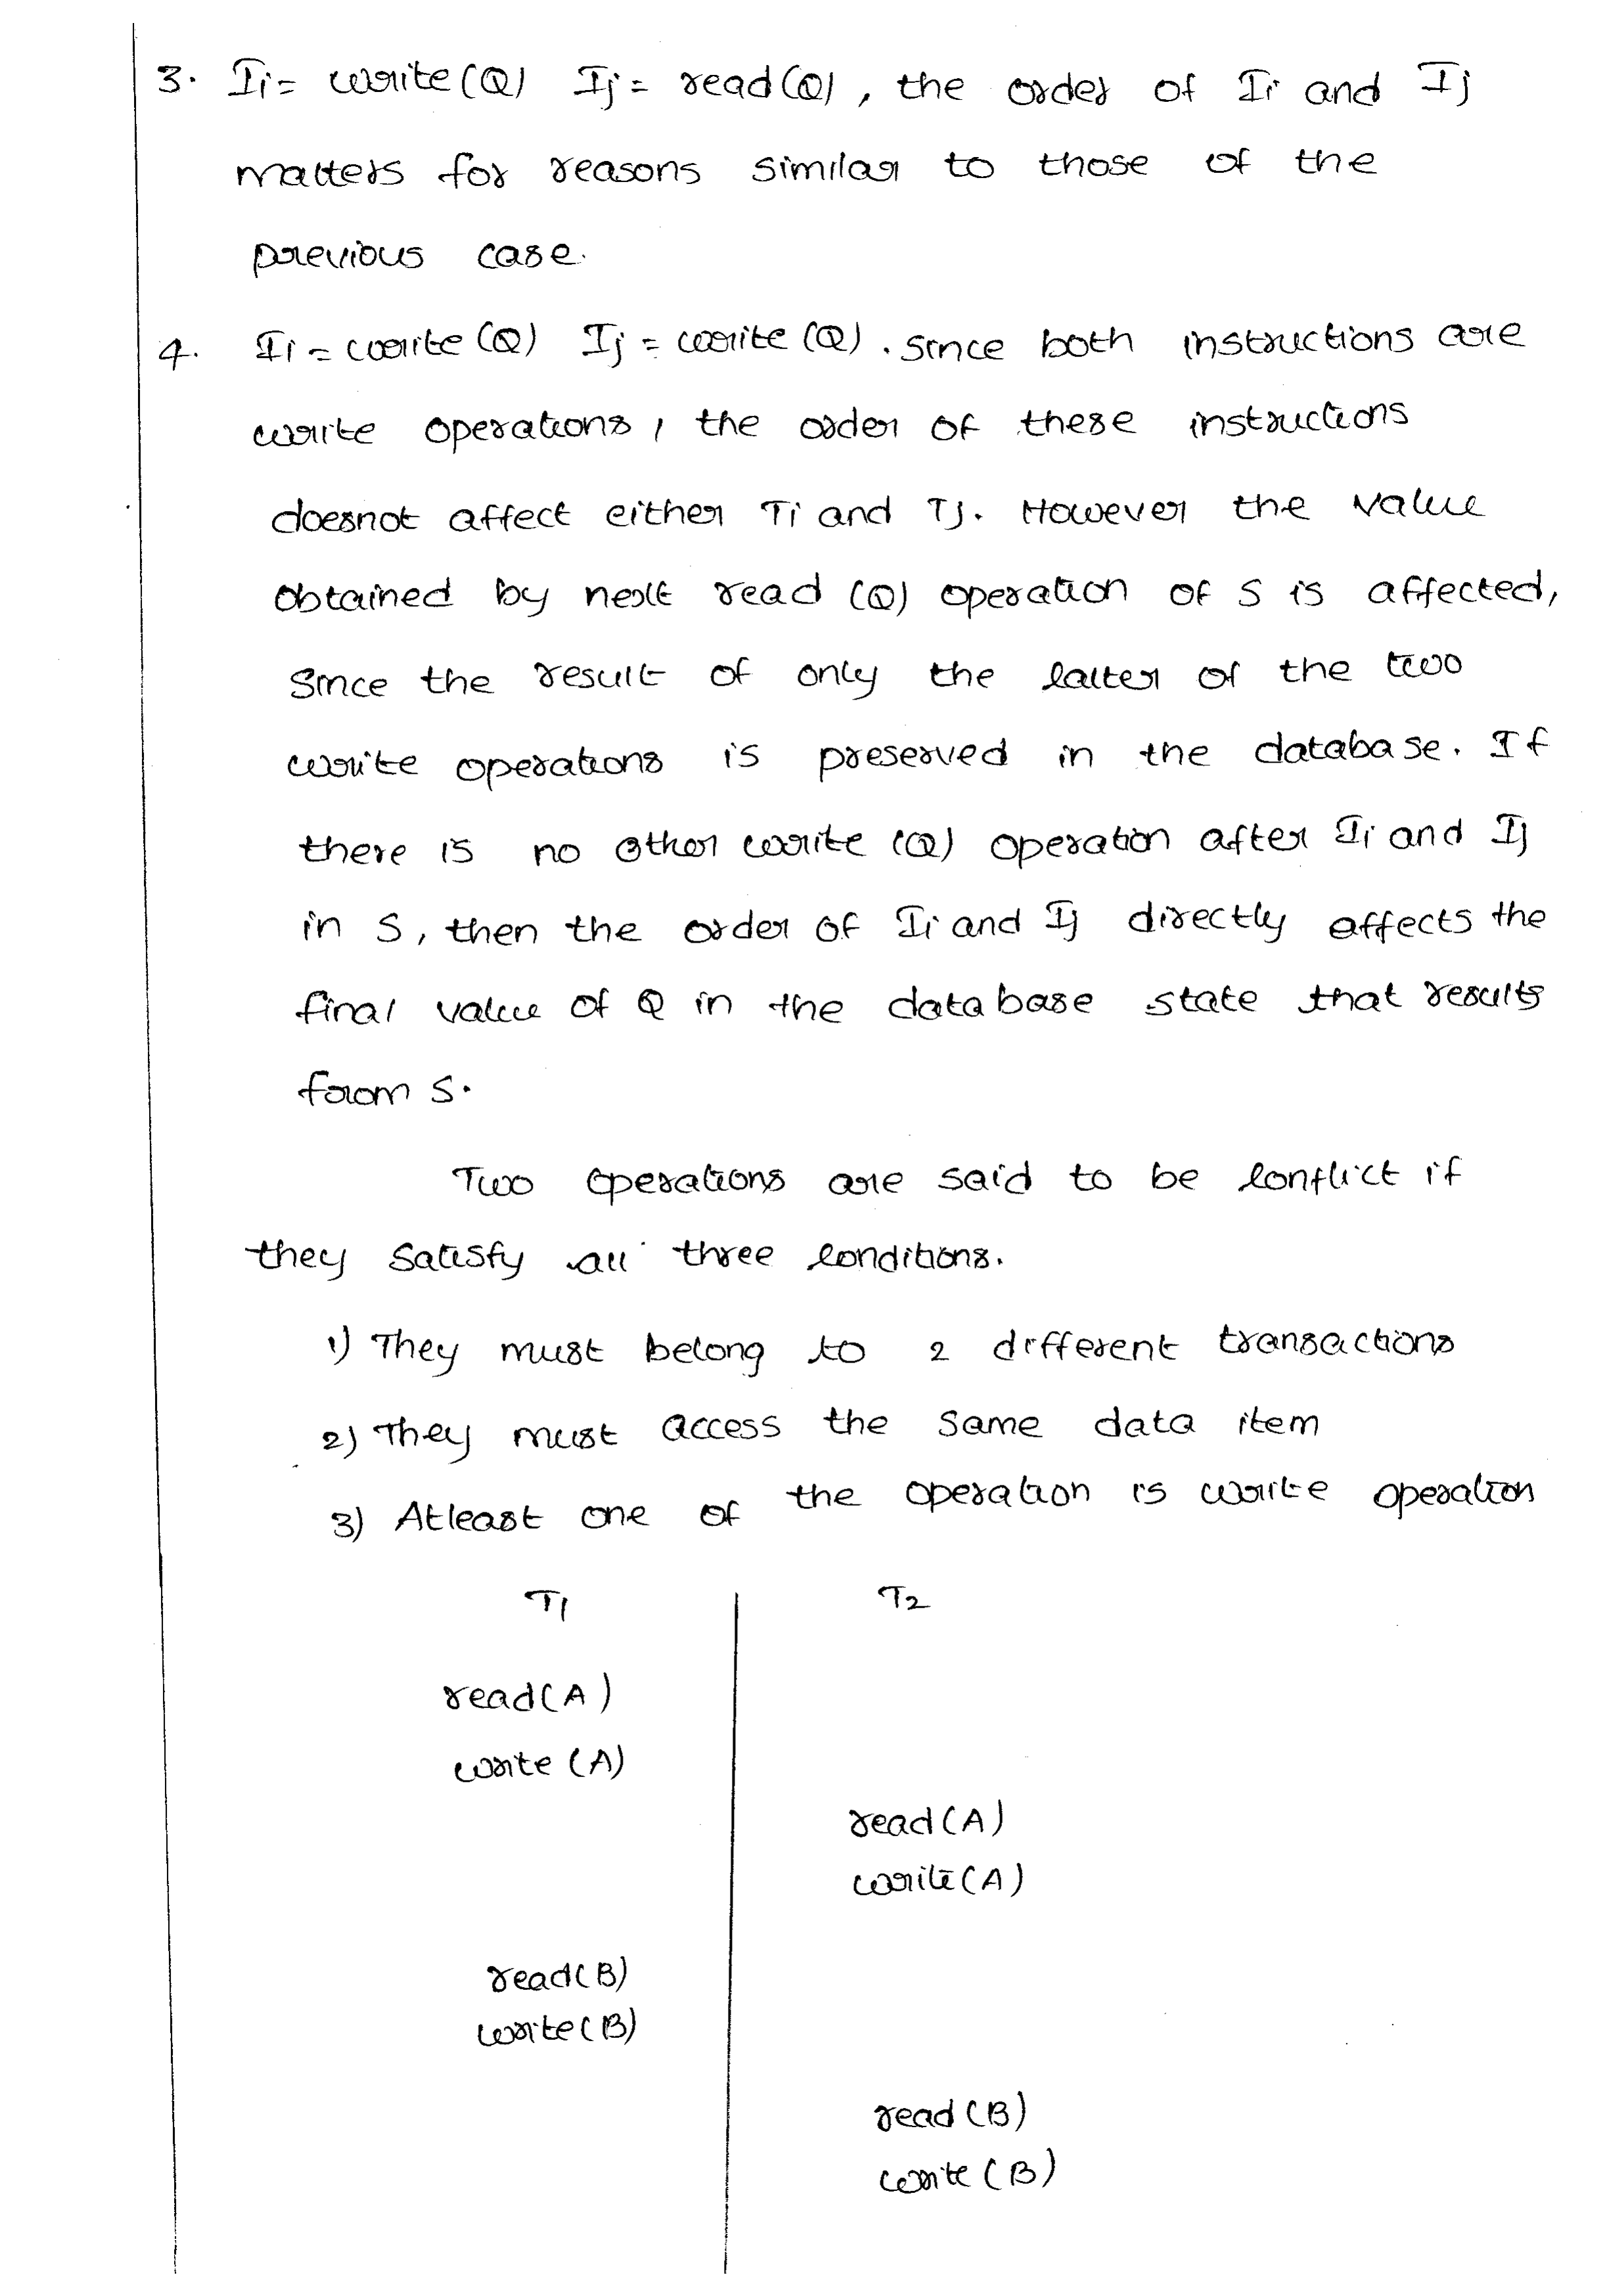 3. Ii = write(Q) Ij = read(Q), the order of Ii and Ij
matters for reasons similar to those of the
previous case.
4. Ii = write (Q) Ij = write (Q). Since both instructions are
write operations, the order of these instructions
doesnot affect either Ti and Tj. However the value
obtained by next read (Q) operation of S is affected,
Since the result of only the latter of the two
write operations is preserved in the database. If
there is no other write (Q) operation after Ii and Ij
in S, then the order of Ii and Ij directly affects the
final value of Q in the database state that results
from S.
Two operations are said to be conflict if
they satisfy all three conditions.
1) They must belong to 2 different transactions
2) They must access the same data item
3) Atleast one of the operation is write operation
T1 T2
read(A)
write (A)
read (A)
write (A)
read(B)
write(B)
read (B)
write (B)